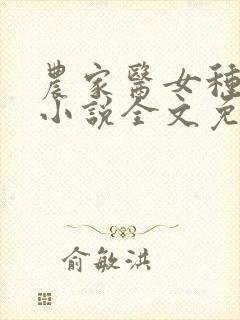 農家醫女種
小說全文免
俞敏洪